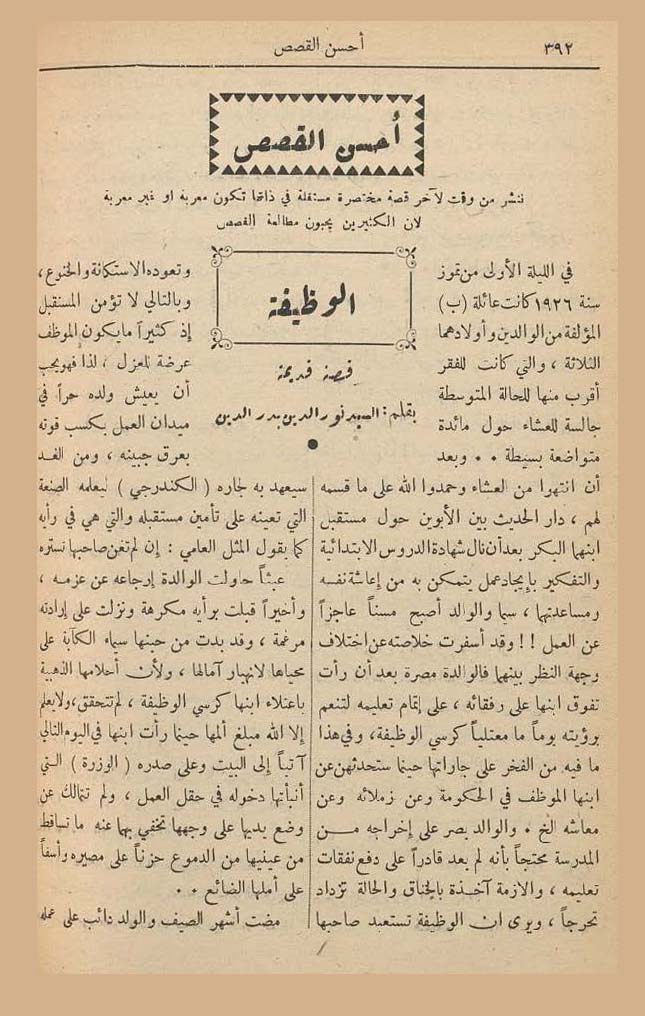 ٣٩٢
أحسن القصص
أحسن القصص
ننشر من وقت لآخر قصة مختصرة مستقلة في ذاتها تكون معربة او غير معربة
لان الكثيرين يحبون مطالعة القصص
الوظيفة
قصة قديمة
بقلم: السيد نور الدين بدر الدين
في الليلة الأولى من تموز
سنة ١٩٢٦ كانت عائلة (ب)
المؤلفة من الوالدين وأولادهما
الثلاثة ، والتي كانت للفقر
أقرب منها للحالة المتوسطة
جالسة للعشاء حول مائدة
متواضعة بسيطة . . وبعد
أن انتهوا من العشاء وحمدوا الله على ما قسمه
لهم ، دار الحديث بين الأبوين حول مستقبل
ابنهما البكر بعد أن نال شهادة الدروس الابتدائية
والتفكير بإيجاد عمل يتمكن به من إعاشة نفسه
ومساعدتهما ، سيما والوالد أصبح مسناً عاجزاً
عن العمل !! وقد أسفرت خلاصته عن اختلاف
وجهة النظر بينهما فالوالدة مصرة بعد أن رأت
تفوق ابنها على رفقائه ، على إتمام تعليمه لتنعم
برؤيته يوماً ما معتلياً كرسي الوظيفة، وفي هذا
ما فيه من الفخر على جاراتها حينما ستحدثهن عن
ابنها الموظف في الحكومة وعن زملائه وعن
معاشه الخ . والوالد يصر على إخراجه مـــن
المدرسة محتجاً بأنه لم يعد قادراً على دفع نفقات
تعليمه ، والازمة آخذة بالخناق والحالة تزداد
تحرجاً ، ويرى ان الوظيفة تستعبد صاحبها
وتعوده الاستكانة والخنوع ،
وبالتالي لا تؤمن المستقبل
إذ كثيراً ما يكون الموظف
عرضة للعزل ، لذا فهو يحب
أن يعيش ولده حراً في
ميدان العمل يكسب قوته
بعرق جبينه ، ومن الغد
سيعهد به لجاره ( الكندرجي ) ليعلمه الصنعة
التي تعينه على تأمين مستقبله والتي هي في رأيه
كما يقول المثل العامي : إن لم تغن صاحبها تستره
عبثاً حاولت الوالدة إرجاعه عن عزمه ،
وأخيراً قبلت برأيه مكرهة ونزلت على إرادته
مرغمة ، وقد بدت من حينها سيماء الكآبة على
محياها لانهيار آمالها ، ولأن أحلامها الذهبية
باعتلاء ابنها كرسي الوظيفة ، لم تتحقق، ولا يعلم
إلا الله مبلغ ألمها حينما رأت ابنها في اليوم التالي
آتياً إلى البيت وعلى صدره ( الوزرة ) التي
أنبأتها دخوله في حقل العمل ، ولم تتمالك عن
وضع يديها على وجهها تخفي بهما عنه ما تساقط
من عينيها من الدموع حزناً على مصيره وأسفاً
على أملها الضائع . .
مضت أشهر الصيف والولد دائب على عمله